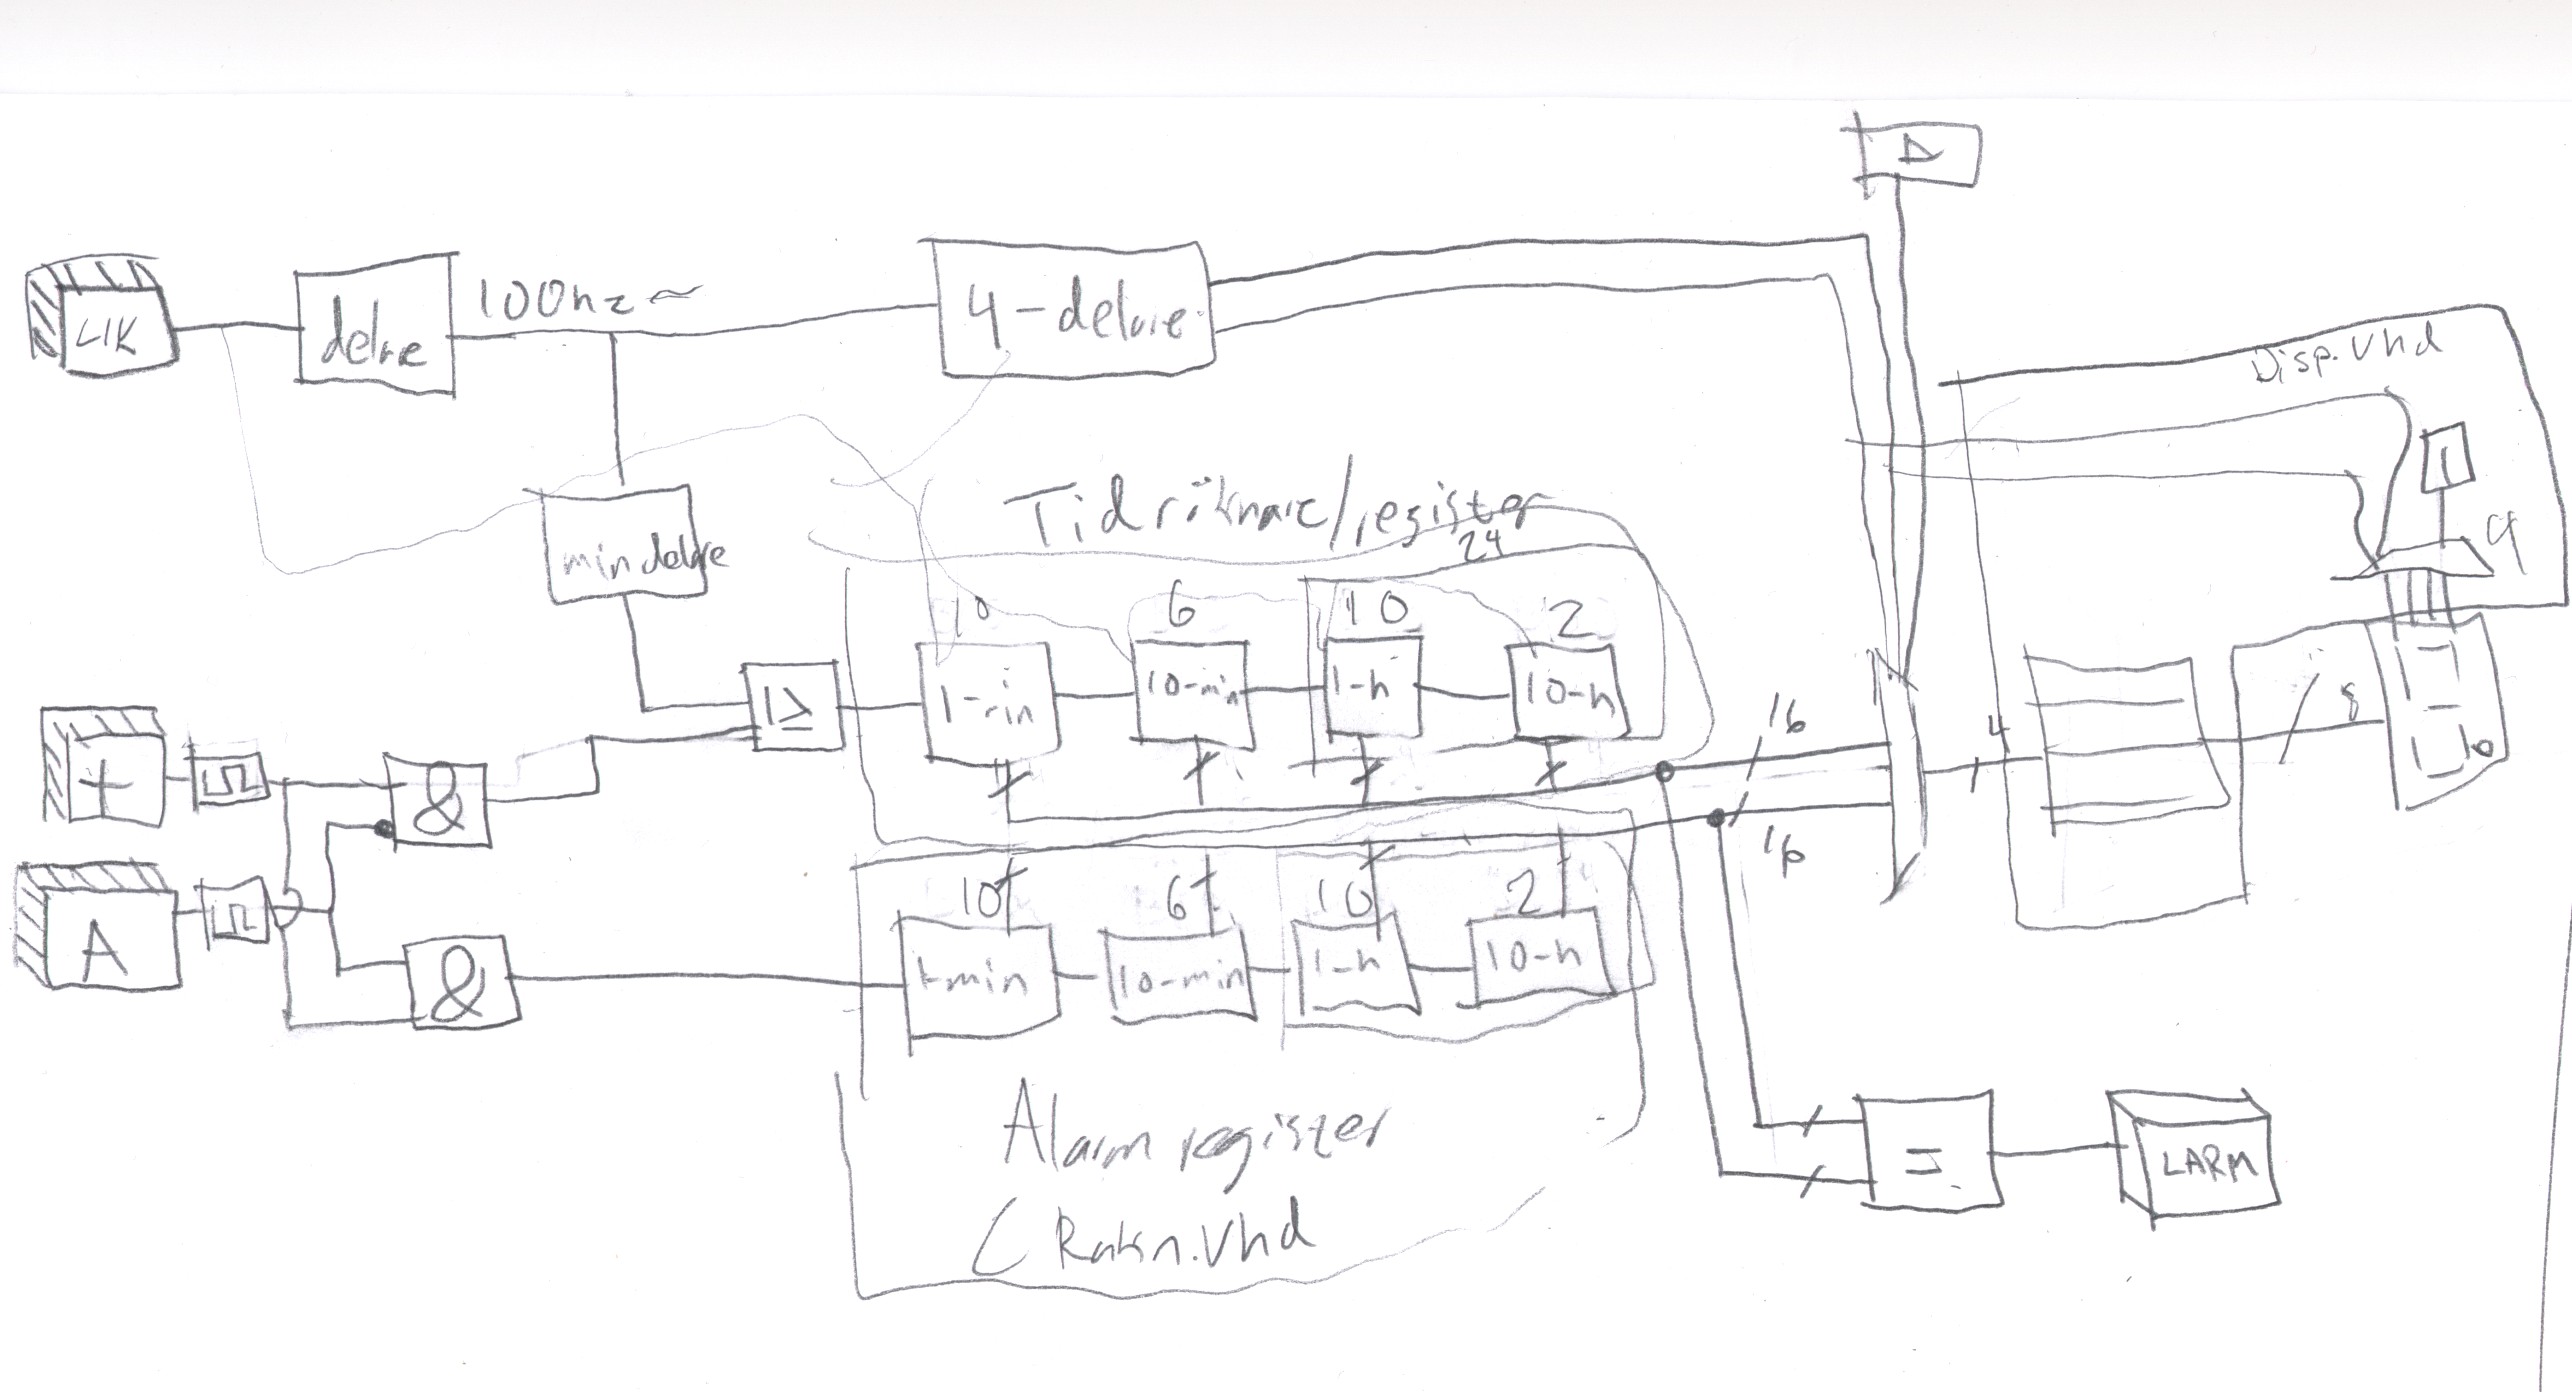 A
CLK
delare
100hz ~
4-delare
Disp.vhd
1
4
min delare
Tidräknare/register
24
10
6
10
2
1-min
10-min
1-h
10-h
≥1
+
&
16
16
4
8
A
&
10
6
10
2
1-min
10-min
1-h
10-h
Alarm register
(Räkn.vhd
=
LARM